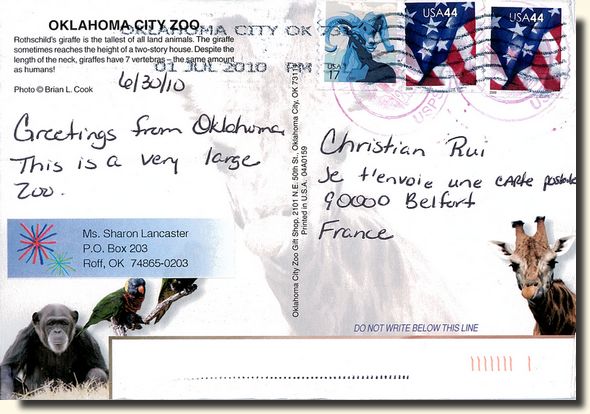 OKLAHOMA CITY ZOO
Rothschild's giraffe is the tallest of all land animals. The giraffe
sometimes reaches the height of a two-story house. Despite the
length of the neck, giraffes have 7 vertebrae – the same amount
as humans!
Photo © Brian L. Cook
6/30/10
OKLAHOMA CITY OK 731
01 JUL 2010 PM
USA
17
USA44
USA44
USPS
Greetings from Oklahoma
This is a very large
Zoo.
Ms. Sharon Lancaster
P.O. Box 203
Roff, OK 74865-0203
Oklahoma City Zoo Gift Shop, 2101 N.E. 50th St., Oklahoma City, OK 73111
Printed in U.S.A. 04A0159
Christian Rui
Je t'envoie une carte postale
90000 Belfort
France
DO NOT WRITE BELOW THIS LINE